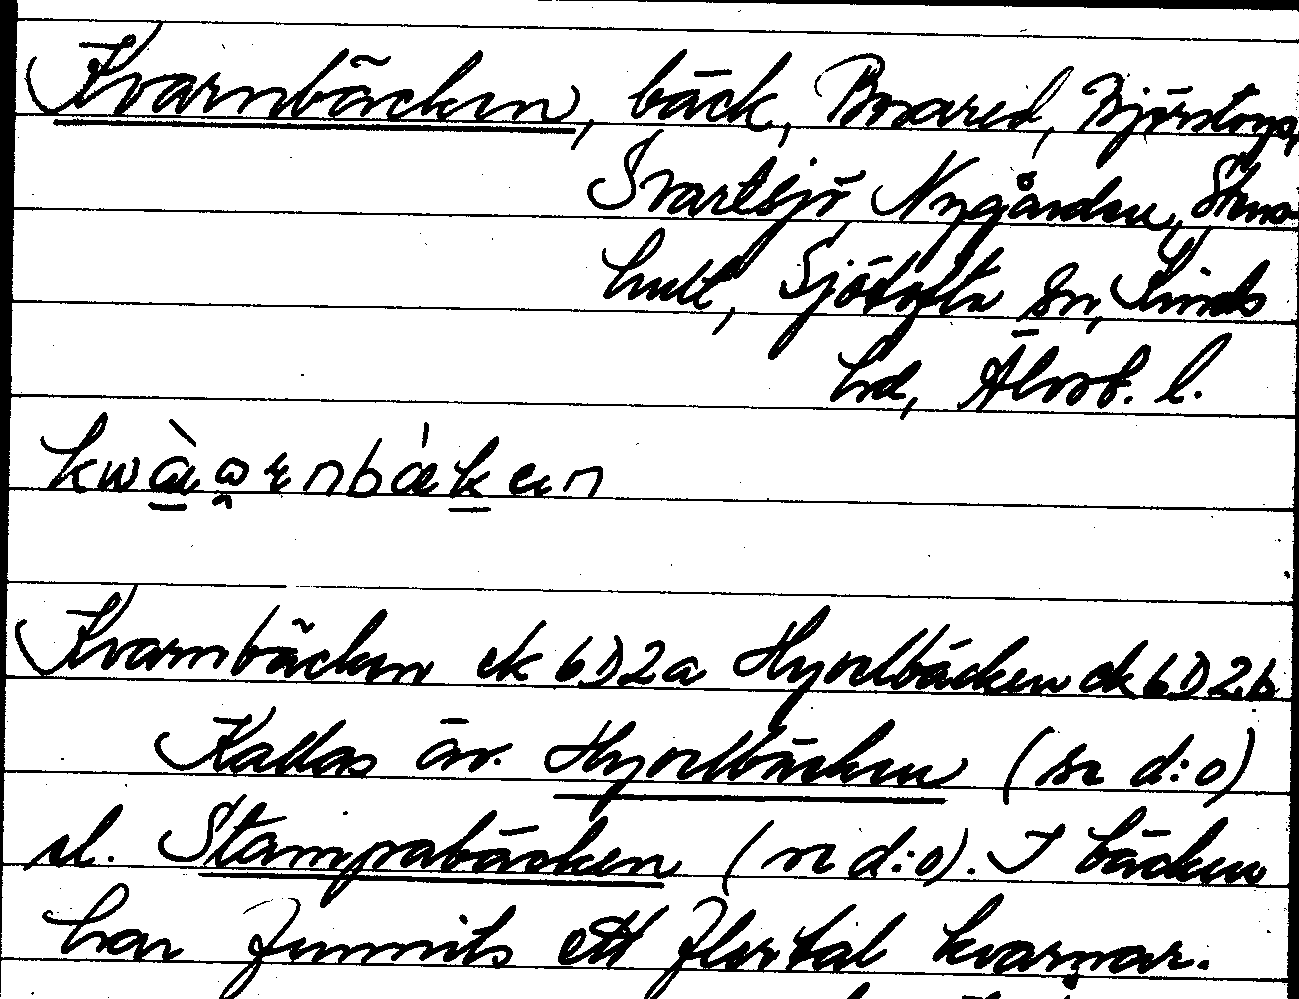 Kvarnbäcken, bäck, Boxared, Björstorp,
Svartsjö Nygården, Stens-
hult, Sjötofta sn, Kinds
hd, Älvsb. l.
Kvarnbäcken ek 6D2a Hyvelbäcken ek 6D2b
Kallas äv. Hyvelbäcken (se d:o)
el. Stampabäcken (se d:o). I bäcken
har funnits ett flertal kvarnar.